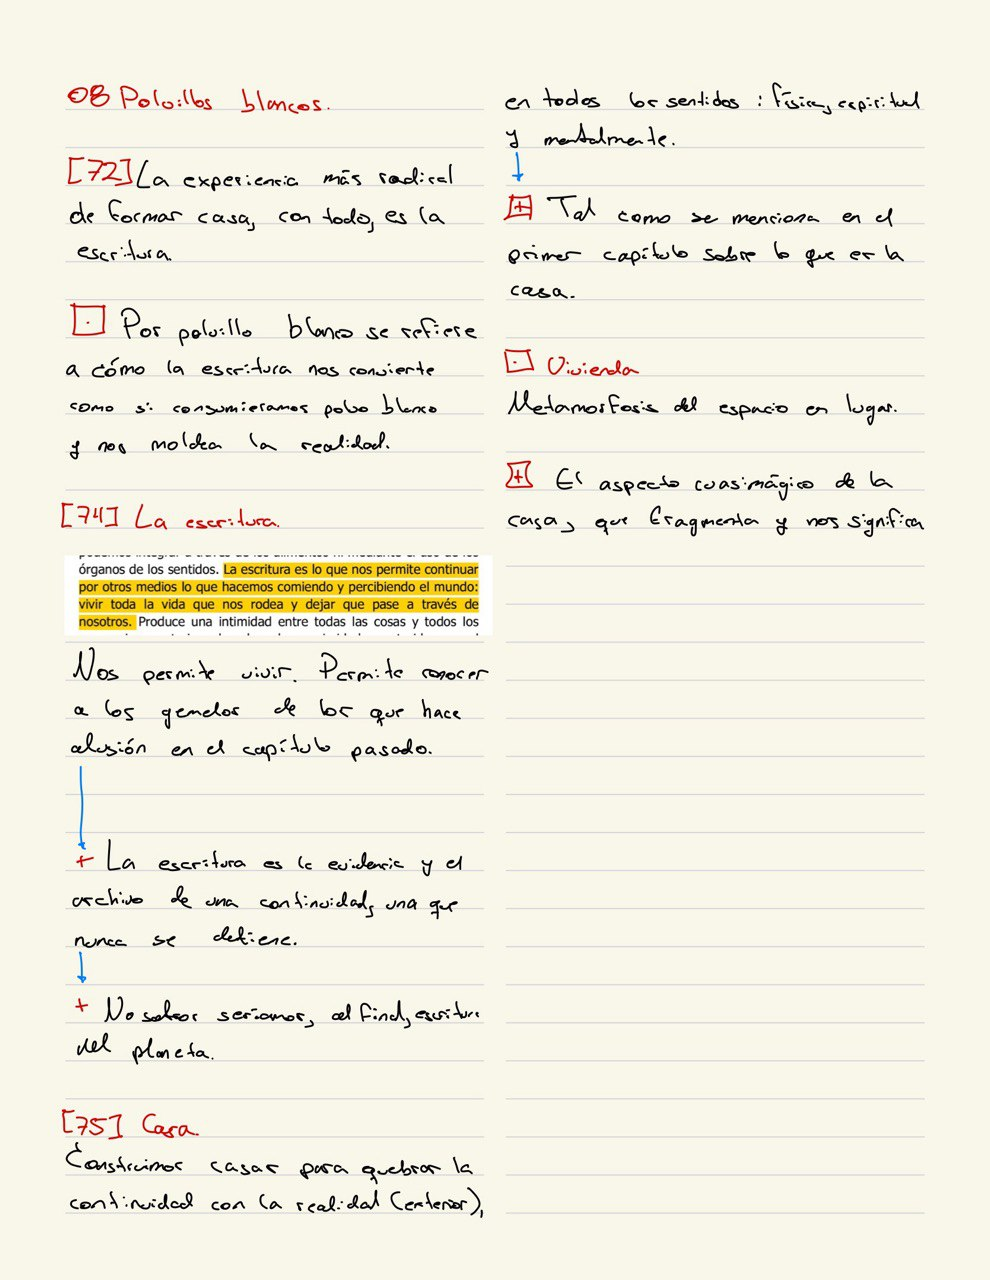 08 Polvillos blancos.
[72] La experiencia más radical
de formar casa, con todo, es la
escritura.
Por polvillo blanco se refiere
a cómo la escritura nos convierte
como si consumieramos polvo blanco
y nos moldea la realidad.
[74] La escritura.
órganos de los sentidos. La escritura es lo que nos permite continuar
por otros medios lo que hacemos comiendo y percibiendo el mundo:
vivir toda la vida que nos rodea y dejar que pase a través de
nosotros. Produce una intimidad entre todas las cosas y todos los
Nos permite vivir. Permite conocer
a los gemelos de los que hace
alusión en el capítulo pasado.
+ La escritura es la evidencia y el
archivo de una continuidad, una que
nunca se detiene.
+ Nosotros seríamos, al final, escritura
del planeta.
[75] Casa.
Construimos casas para quebrar la
continuidad con la realidad (exterior),
en todos los sentidos : física, espiritual
y mentalmente.
+ Tal como se menciona en el
primer capítulo sobre lo que es la
casa.
Vivienda
Metamorfosis del espacio en lugar.
+ El aspecto cuasimágico de la
casa, que fragmenta y nos significa